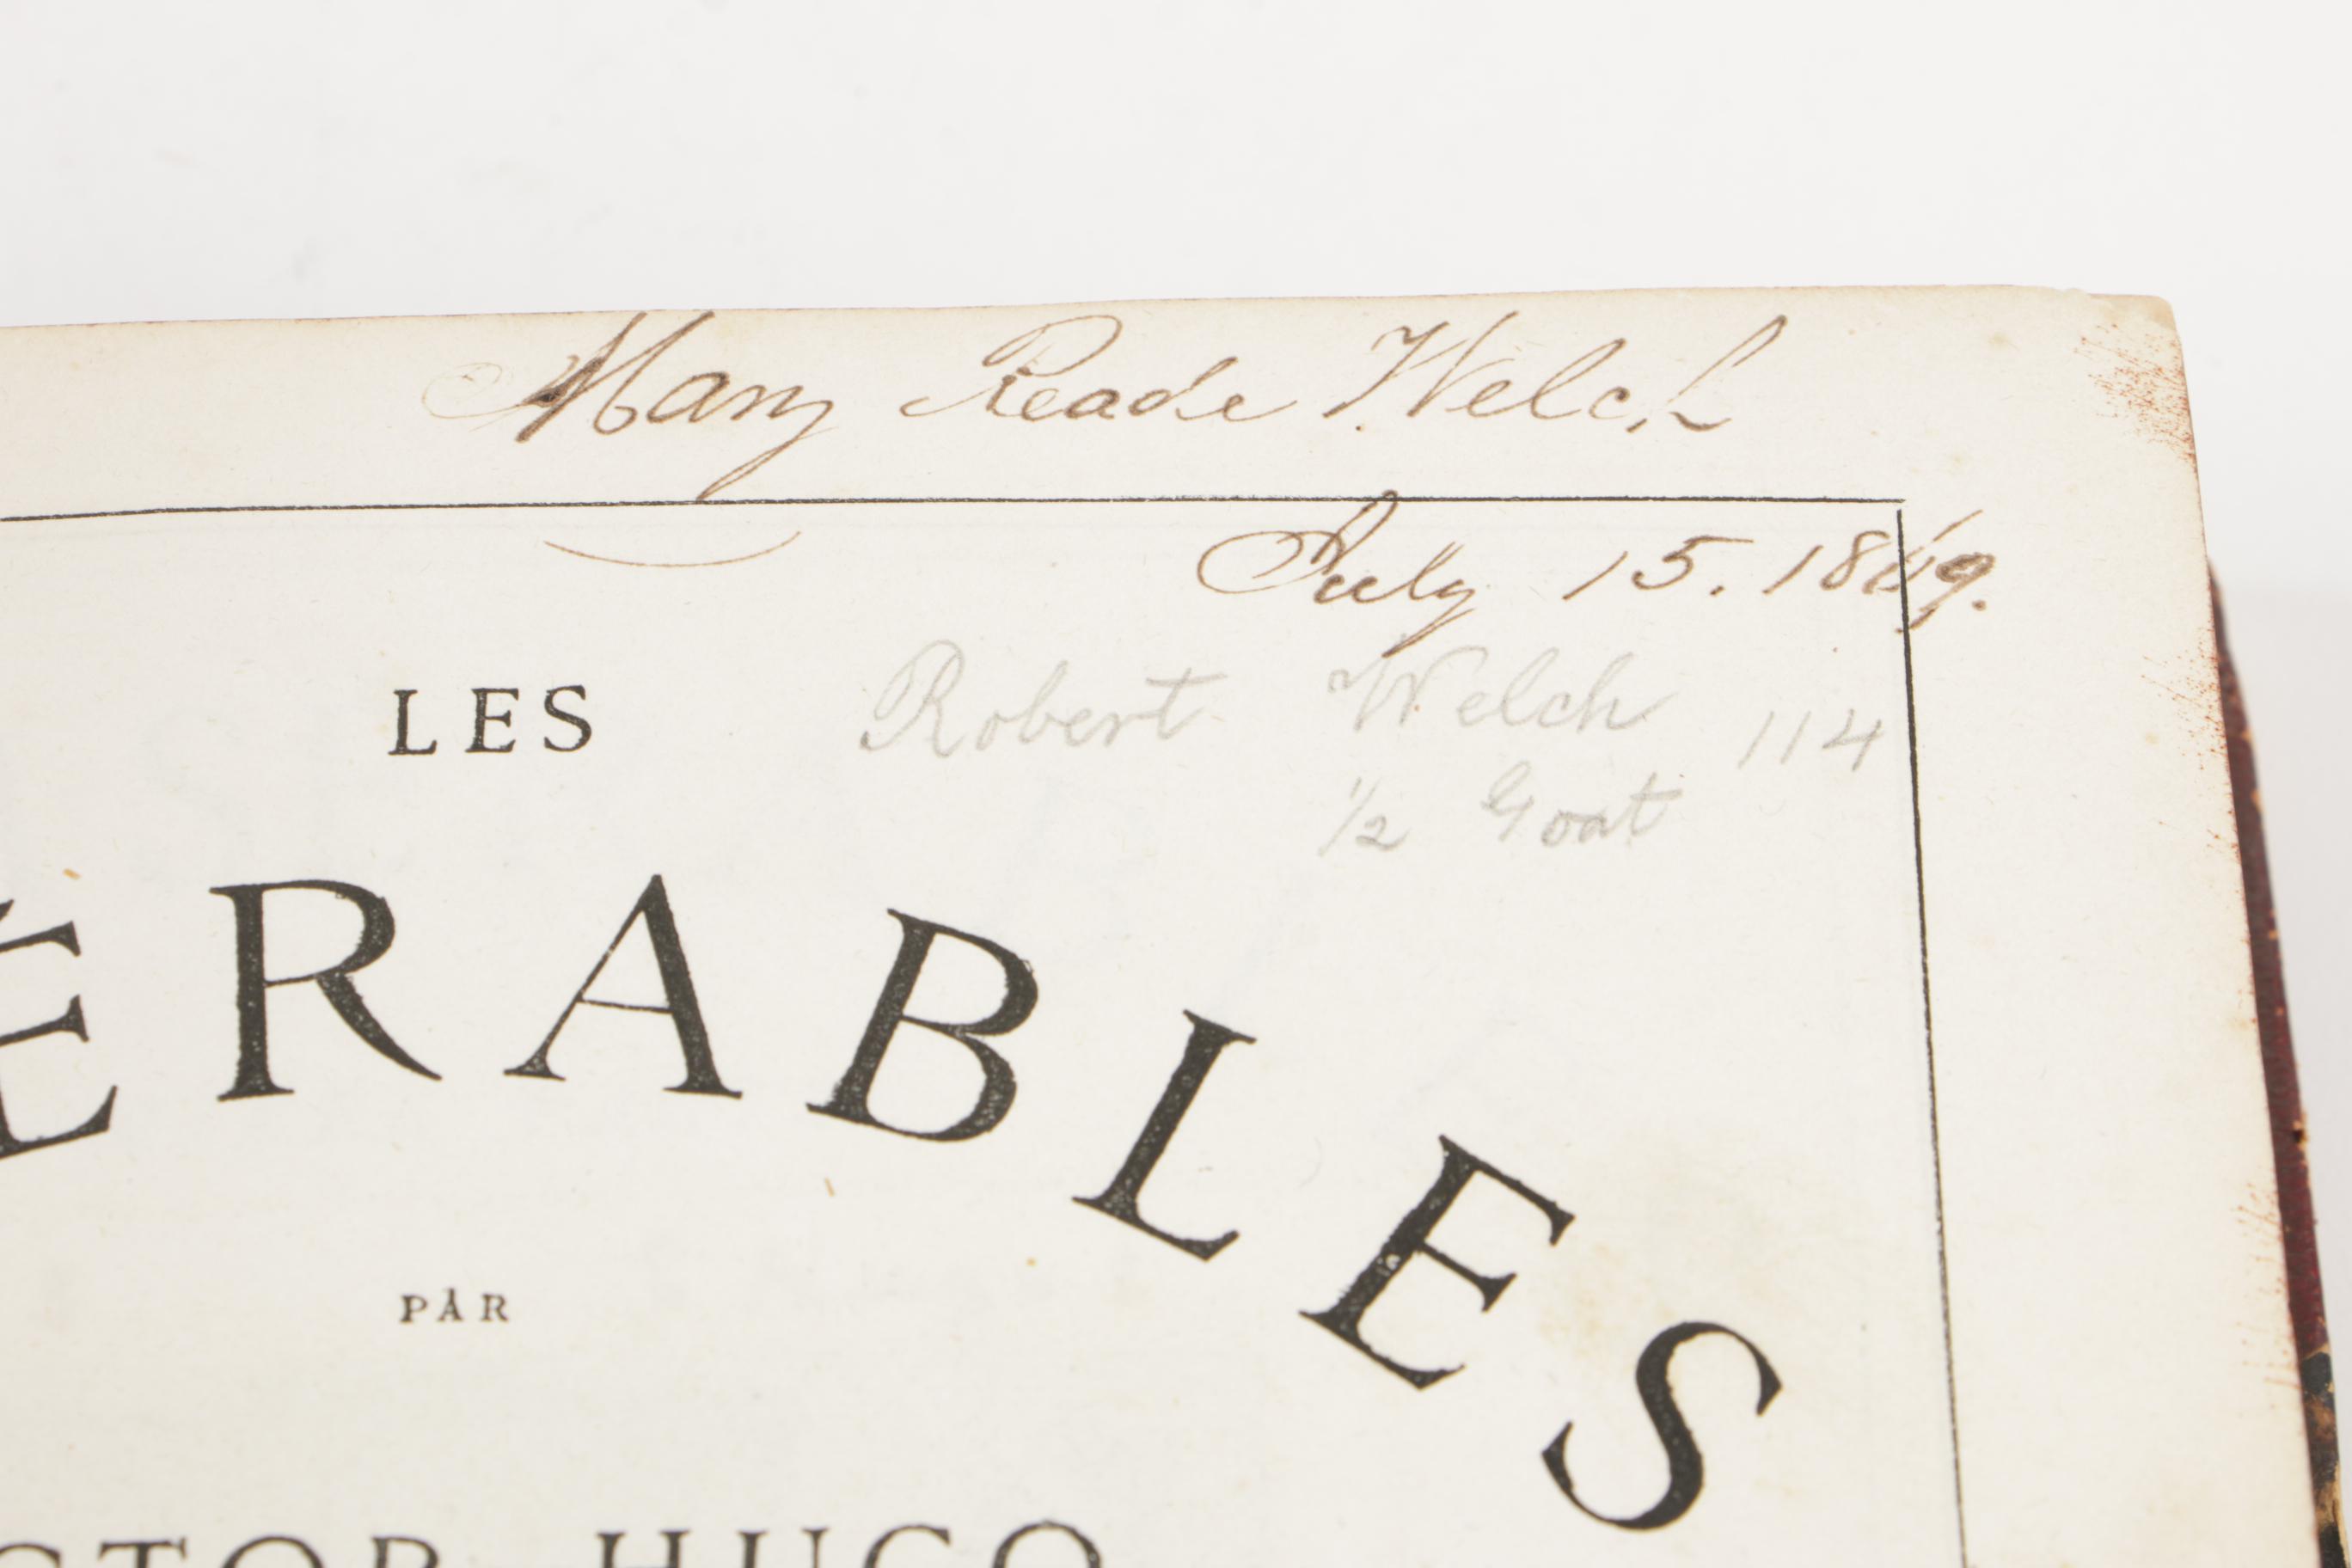 Mary Reade Welch
July 15. 1869.
LES
Robert Welch 114
½ Goat
ÉRABLES
PAR
CTOR HUGO